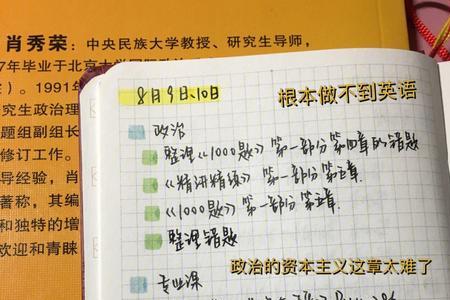 肖秀荣：中央民族大学教授、研究生导师，
7年毕业于北京大学
）。1991年
究生政治理
题组副组长
修订工作。
导经验，肖
著称，其编
和独特的增
欢迎和青睐
8月9日、10日
根本做不到英语
政治
整理《1000题》第一部分第四章的错题
《精讲精练》第一部分第五章
《1000题》第一部分第五章
整理错题
政治的资本主义这章太难了
专业课